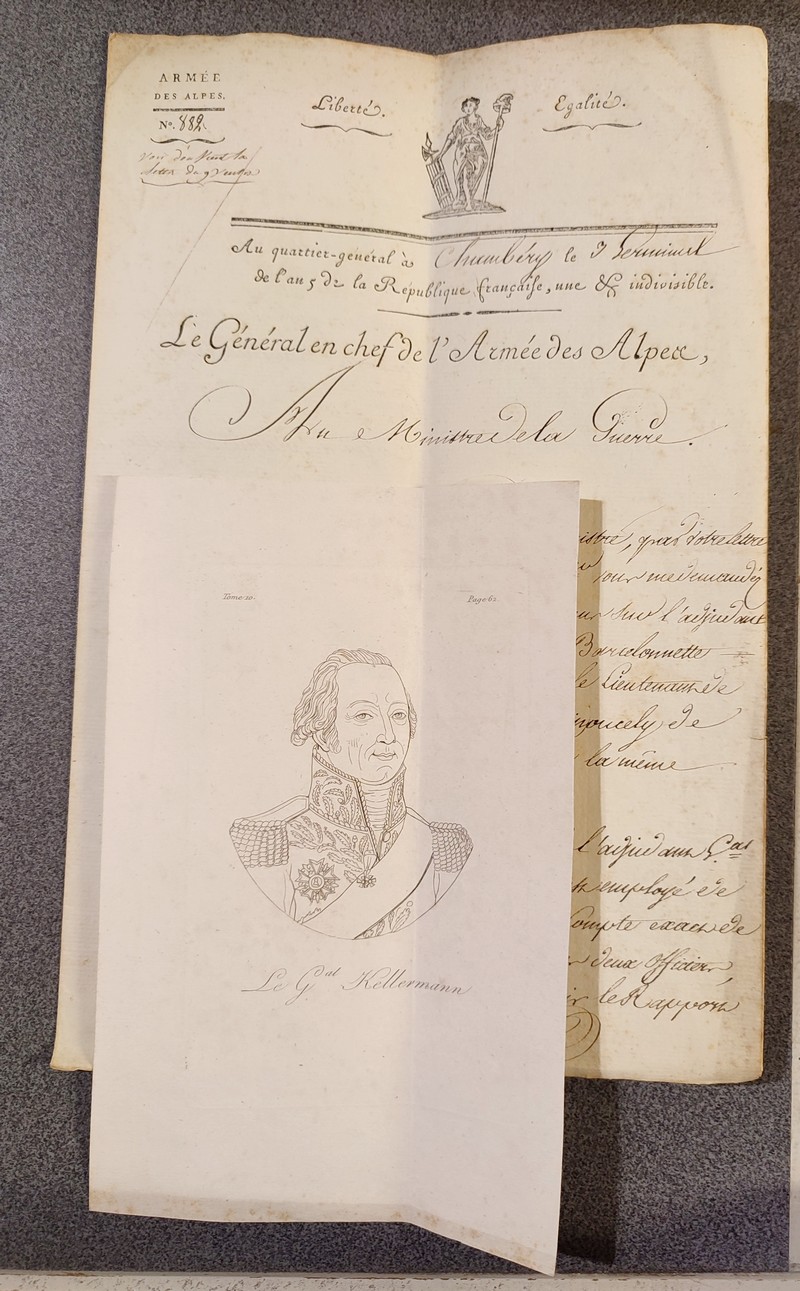 ARMÉE
DES ALPES.
N.º 882
Liberté.
Egalité.
Au quartier-général à Chambéry le 3 Germinal
de l'an 5 de la République française, une & indivisible.
Le Général en chef de l'Armée des Alpes,
Au Ministre de la Guerre.
istre, par votre lettre
pour me demandéz
eur sur l'adjudant
Barcelonnette
le Lieutenant de
de
la même
l'adjudant G.al
employé de
Compte exact de
deux officiers,
le Rapport
Tome 10.
Page 62.
Le G.al Kellermann